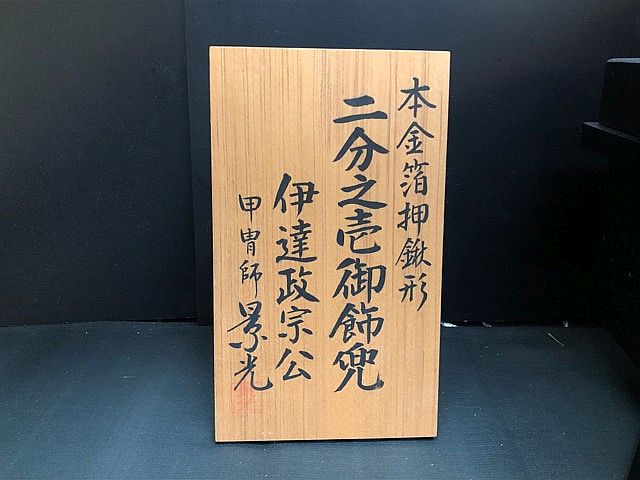 本金箔押鍬形
二分之壱御飾兜
伊達政宗公
甲冑師 景光